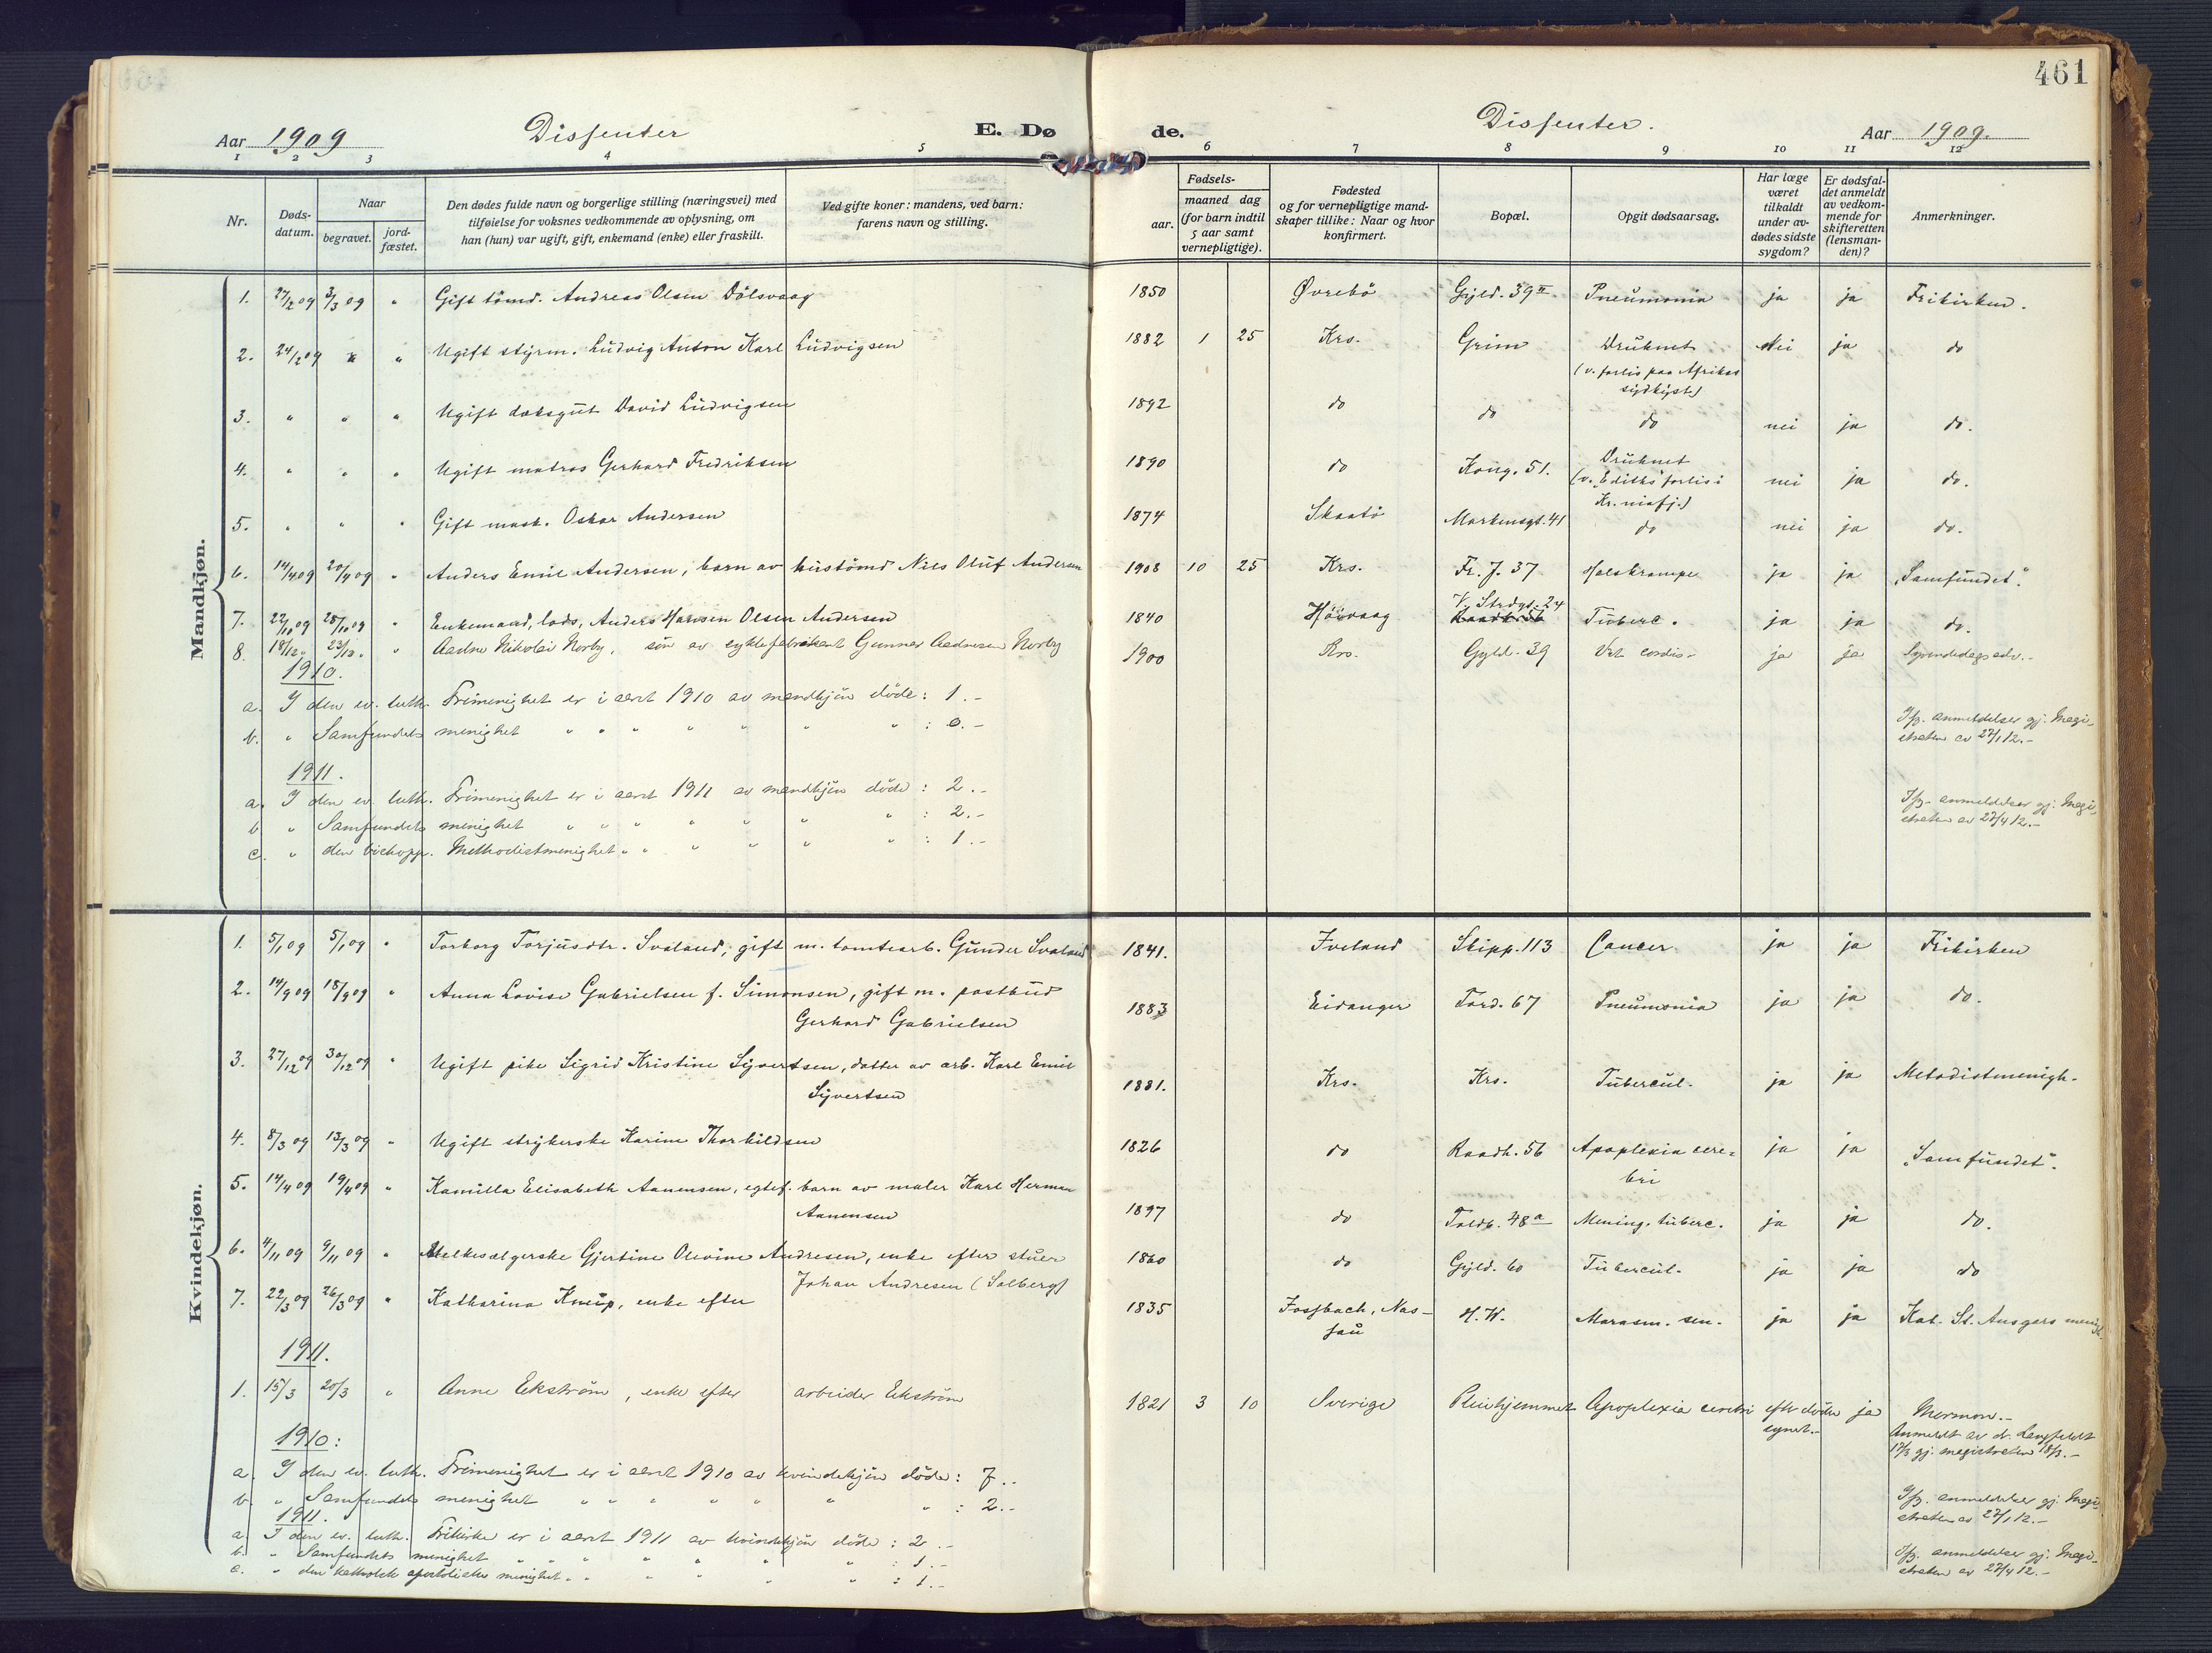 461
Aar 1909 Dissenter E. Dø de. Dissenter. Aar 1909.
1 2 3 4 5 6 7 8 9 10 11 12
Nr. Døds-datum. Naar begravet. jord-fæstet. Den dødes fulde navn og borgerlige stilling (næringsvei) med tilføielse for voksnes vedkommende av oplysning, om han (hun) var ugift, gift, enkemand (enke) eller fraskilt. Ved gifte koner: mandens, ved barn: farens navn og stilling. Fødsels- aar. maaned dag (for barn indtil 5 aar samt vernepligtige). Fødested og for vernepligtige mand-skaper tillike: Naar og hvor konfirmert. Bopæl. Opgit dødsaarsag. Har læge været tilkaldt under av-dødes sidste sygdom? Er dødsfal-det anmeldt av vedkom-mende for skifteretten (lensman-den)? Anmerkninger.
Mandkjøn.
1. 27/2 09 3/3 09 " Gift tømd. Andreas Olsen Dålsvaag 1850 Øvrebö Gyld. 39 II Pneumonia ja ja Frikirken.
2. 24/2 09 " " Ugift styrm. Ludvig Anton Karl Ludvigsen 1882 1 25 Krs. Grim Druknet nei ja do
(v. forlis paa Afrikas
sydkyst)
3. " " " Ugift daksgut David Ludvigsen 1892 do do do nei ja do.
4. " " " Ugift matros Gerhard Fredriksen 1890 do Kong. 51. Druknet nei ja do.
(v. "Ediths" forlis i
Kr.niafj.)
5. " " " Gift mask. Oskar Andersen 1874 Skaatö Markensgt. 41 do nei ja do.
6. 14/4 09 20/4 09 " Anders Emil Andersen, barn av hustömd Nils Oluf Andersen 1908 10 25 Krs. Fr. J. 37 Halskrampe ja ja "Samfundet".
7. 22/10 09 28/10 09 " Enkemand, lods, Anders Hansen Olsen Andersen 1840 Høivaag V. Strdgt. 24 Tuberc. ja ja do.
8. 18/12 " 23/12 " " Aadne Nikolai Norby, søn av cyklefabrikant Gunnar Aadnesen Norby 1900 Krs. Gyld. 39 Vit. cordis. ja ja Syvendedags adv.-
1910.
a. I den ev. luth. Frimenighet er i aaret 1910 av mandkjön döde: 1.-
b. " Samfundets menighet " " " " " " " : 0.- Ifg. anmeldelser gj. Magi-
straten av 27/1 12.-
1911.
a. I den ev. luth. Frimenighet er i aaret 1911 av mandkjön döde: 2.- Ifg. anmeldelser gj. Magi-
b " Samfundets menighet " " " " " " " : 2.- straten av 27/4 12.-
c. " den biskopp. Methodistmenighet " " " " " " : 1.-
Kvindekjøn.
1. 5/1 09 5/1 09 " Torborg Torjusdtr. Svaland, gift m. tomtearb. Gunder Svaland 1841. Iveland Skipp. 113 Cancer ja ja Frikirken
2. 14/9 09 18/9 09 " Anna Lovise Gabrielsen f. Simonsen, gift m. postbud 1883 Eidanger Tord. 67 Pneumonia ja ja do.
Gerhard Gabrielsen
3. 27/12 09 30/12 09 " Ugift pike Sigrid Kristine Syvertsen, datter av arb. Karl Emil 1881. Krs. Krs. Tubercul. ja ja Metodistmenigh.
Syvertsen
4. 8/3 09 13/3 09 " Ugift strykerske Karine Thorkildsen 1826 do Raadh. 56 Apoplexia cere- ja ja "Samfundet".
bri
5. 14/4 09 19/4 09 " Kamilla Elisabeth Aanensen, egtef. barn av maler Karl Herman 1897 do Toldb. 48 a Mening. tuberc. ja ja do.
Aanensen
6. 4/11 09 9/11 09 " Melkesælgerske Gjertine Olevine Andresen, enke efter stuer 1860 do Gyld. 60 Tubercul. ja ja do
Johan Andresen (Solberg)
7. 22/3 09 26/3 09 " Katharina Kneip, enke efter 1835 Fossbach, Nas- H.W. Marasm. sen. ja ja Kat. St. Ansgars menigh.
sau
1911.
1. 15/3 20/3 " Anne Ekström, enke efter arbeider Ekström 1821 3 10 Sverige Pleiehjemmet Apoplexia cerebri efter döden ja Mormon.-
synet.- Anmeldt av dr. Langfeldt
17/3 gj. magistraten 18/3.-
1910:
a. I den ev. luth. Frimenighet er i aaret 1910 av kvindekjön döde: 7.-
b. " Samfundets menighet " " " " " " " : 2.- Ifg. anmeldelser gj. Magi-
straten av 27/1 12.-
1911.
a. I den ev. luth. Frikirke er i aaret 1911 av kvindekjön döde: 2.-
b. " Samfundets menighet " " " " " " " : 1.- Ifg. anmeldelser gj. Magi-
c. " den katholsk apostoliske menighet " " " " " : 1.- straten av 27/4 12.-